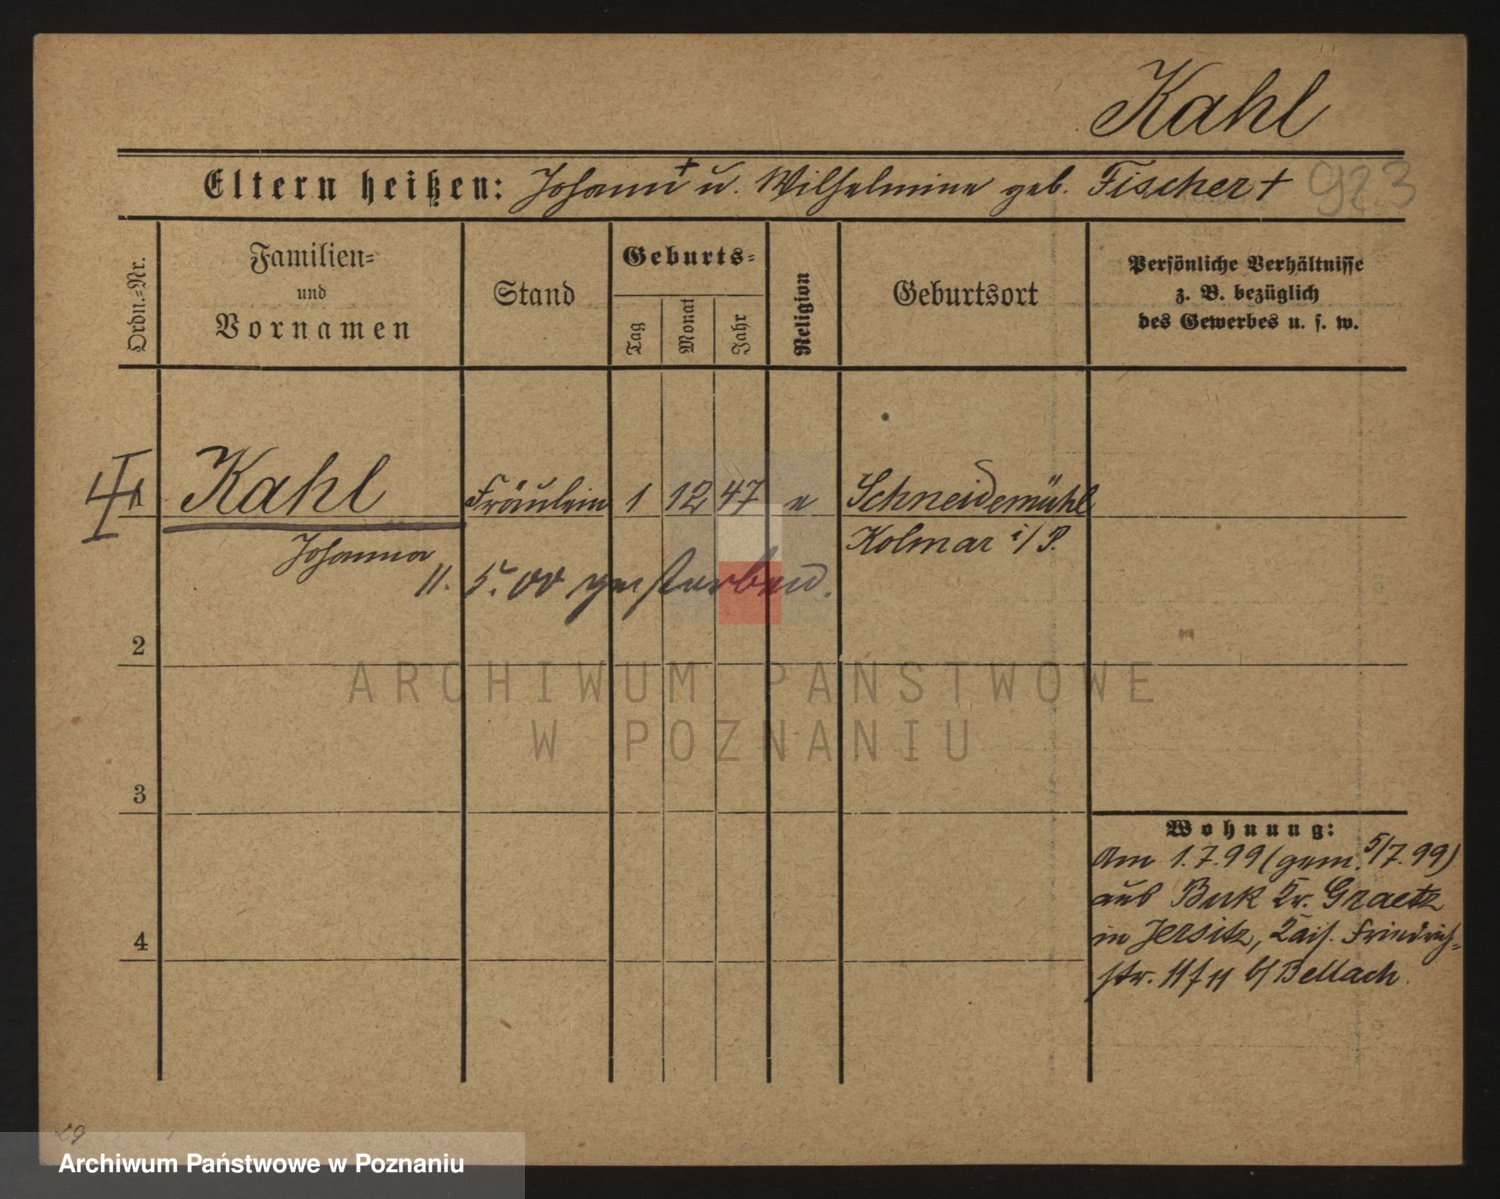 Kahl
Eltern heißen: Johann + u. Wilhelmine geb. Fischer +
923
Ordn.=Nr.
Familien=
und
Vornamen
Stand
Geburts=
Tag
Monat
Jahr
Religion
Geburtsort
Persönliche Verhältnisse
z. B. bezüglich
des Gewerbes u. s. w.
Kahl Fräulein 1 12 47 e Schneidemühl
Johanna Kolmar i/P.
11. 5. 00 gestorben.
2
ARCHIWUM PAŃSTWOWE
W POZNANIU
3
Wohnung:
Am 1.7.99 (gem. 5/7.99)
aus Buk Kr. Graetz
4
in Jersitz, Kais. Friedrich=
str. b/ Bellach
29
Archiwum Państwowe w Poznaniu